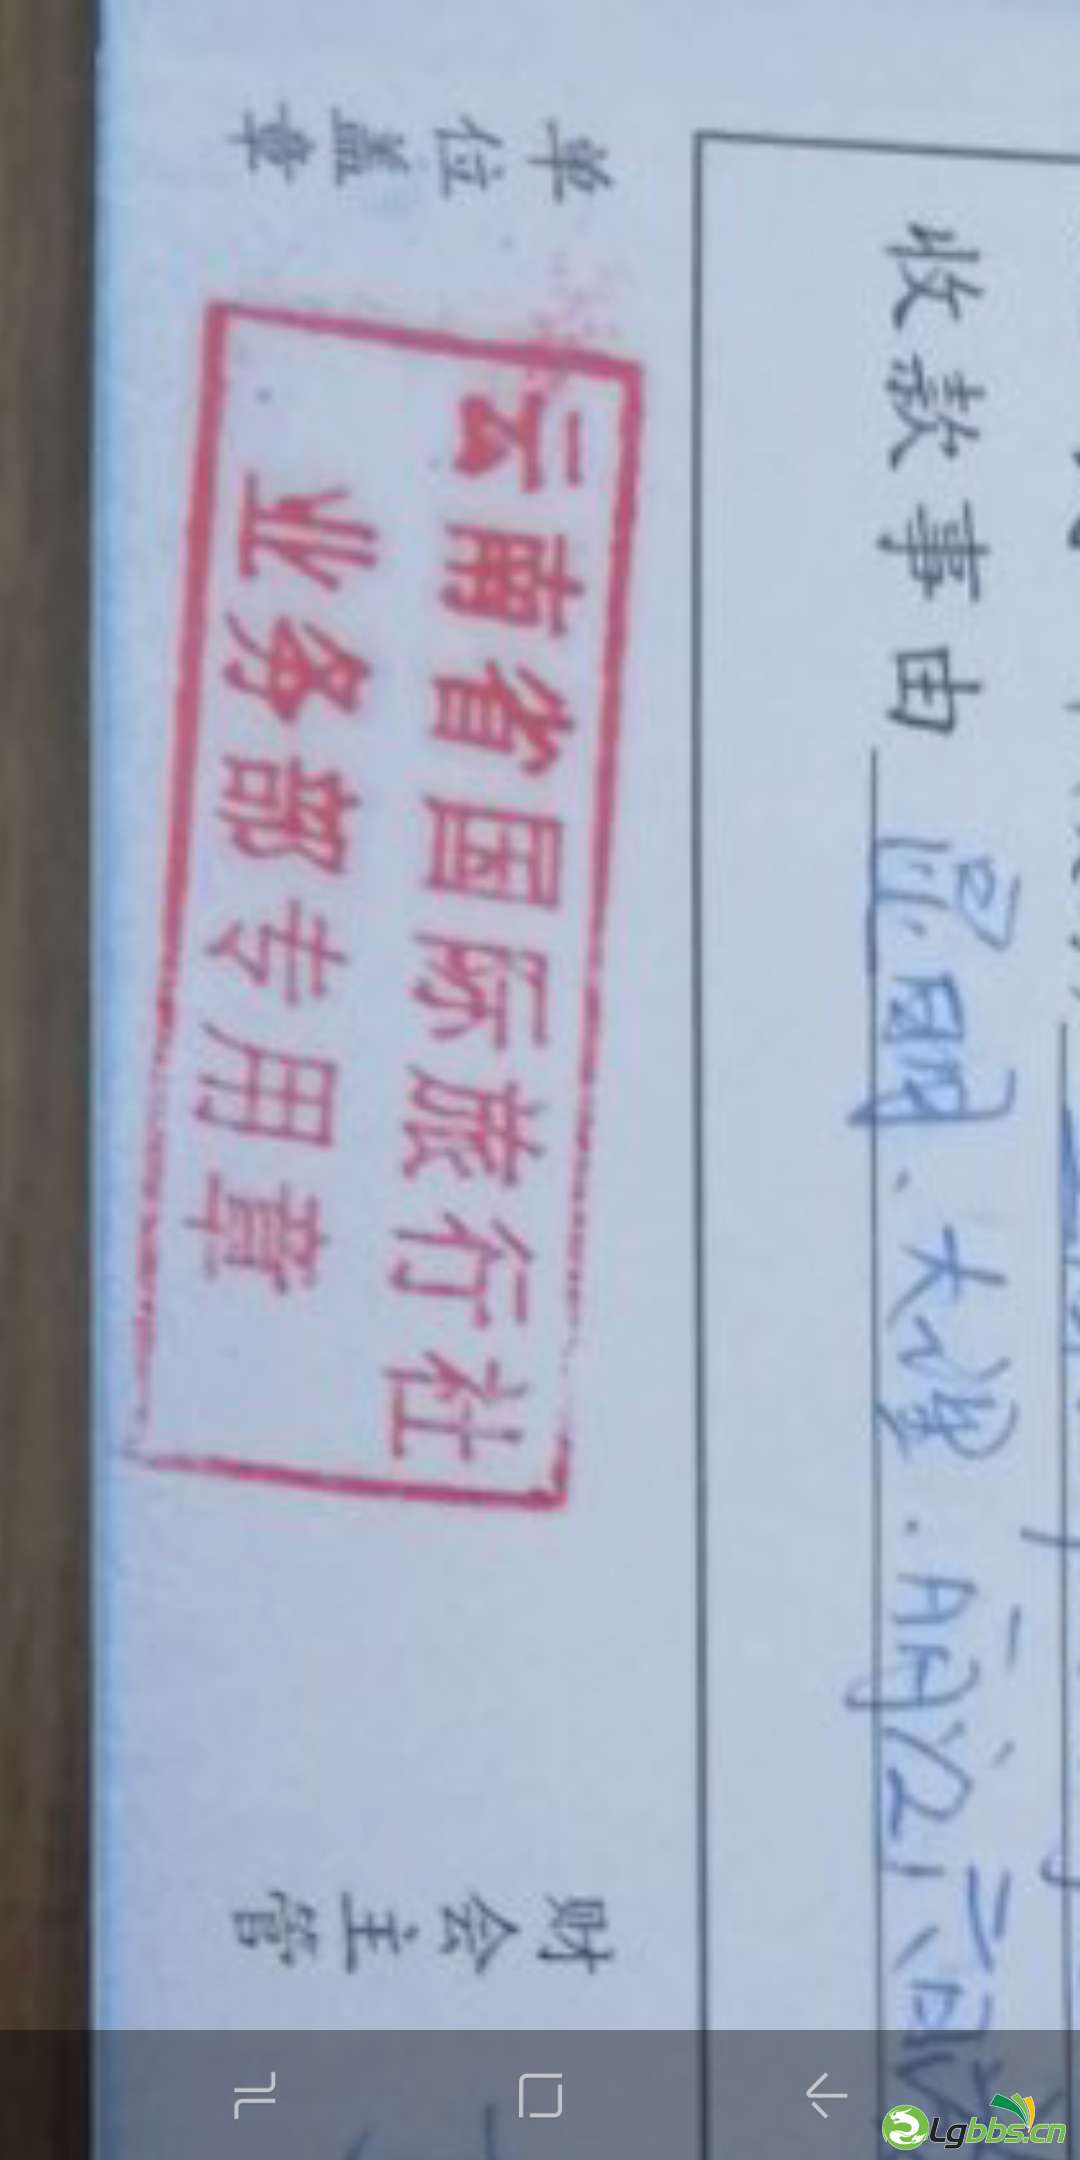 收款事由 昆明、大理.
单位盖章
云南省国际旅行社
业务部专用章
财会主管
Lgbbs.cn